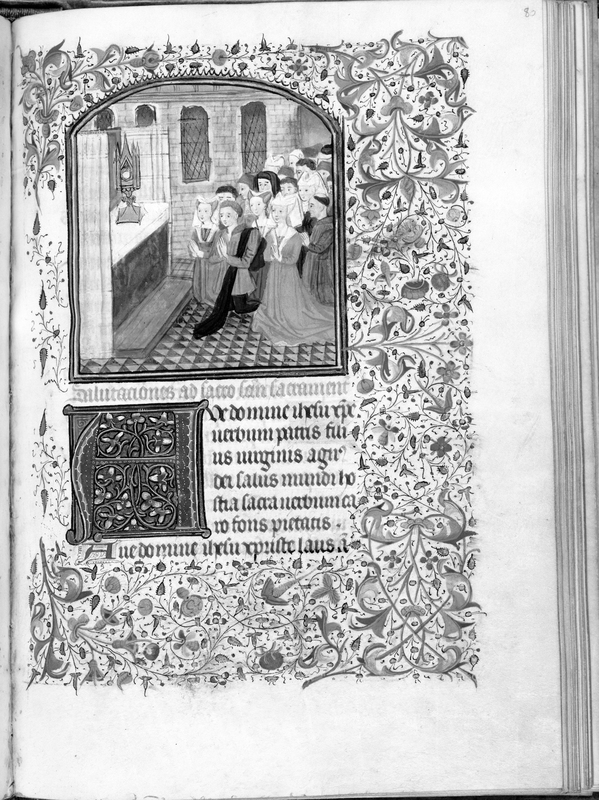 80
Salutaciones ad sacro sen sacrament
Ve domine ihesu xpe
uerbum patris fili
us uirginis agn9
dei salus mundi ho
stia sacra uerbum ca
ro fons pietatis
Aue domine ihesu xpriste laus a